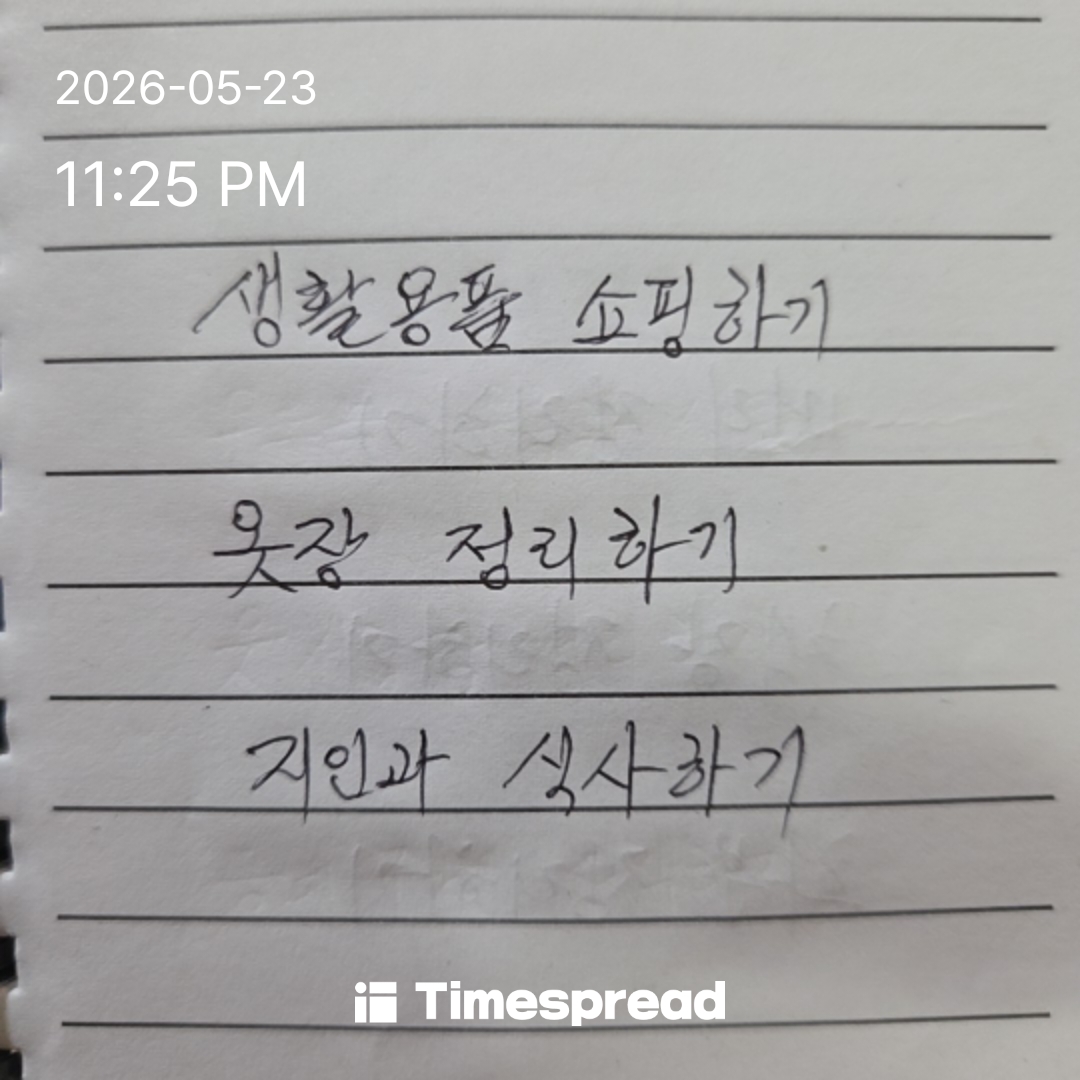 2026-05-23
11:25 PM
생활용품 쇼핑하기
옷장 정리하기
지인과 식사하기
Timespread